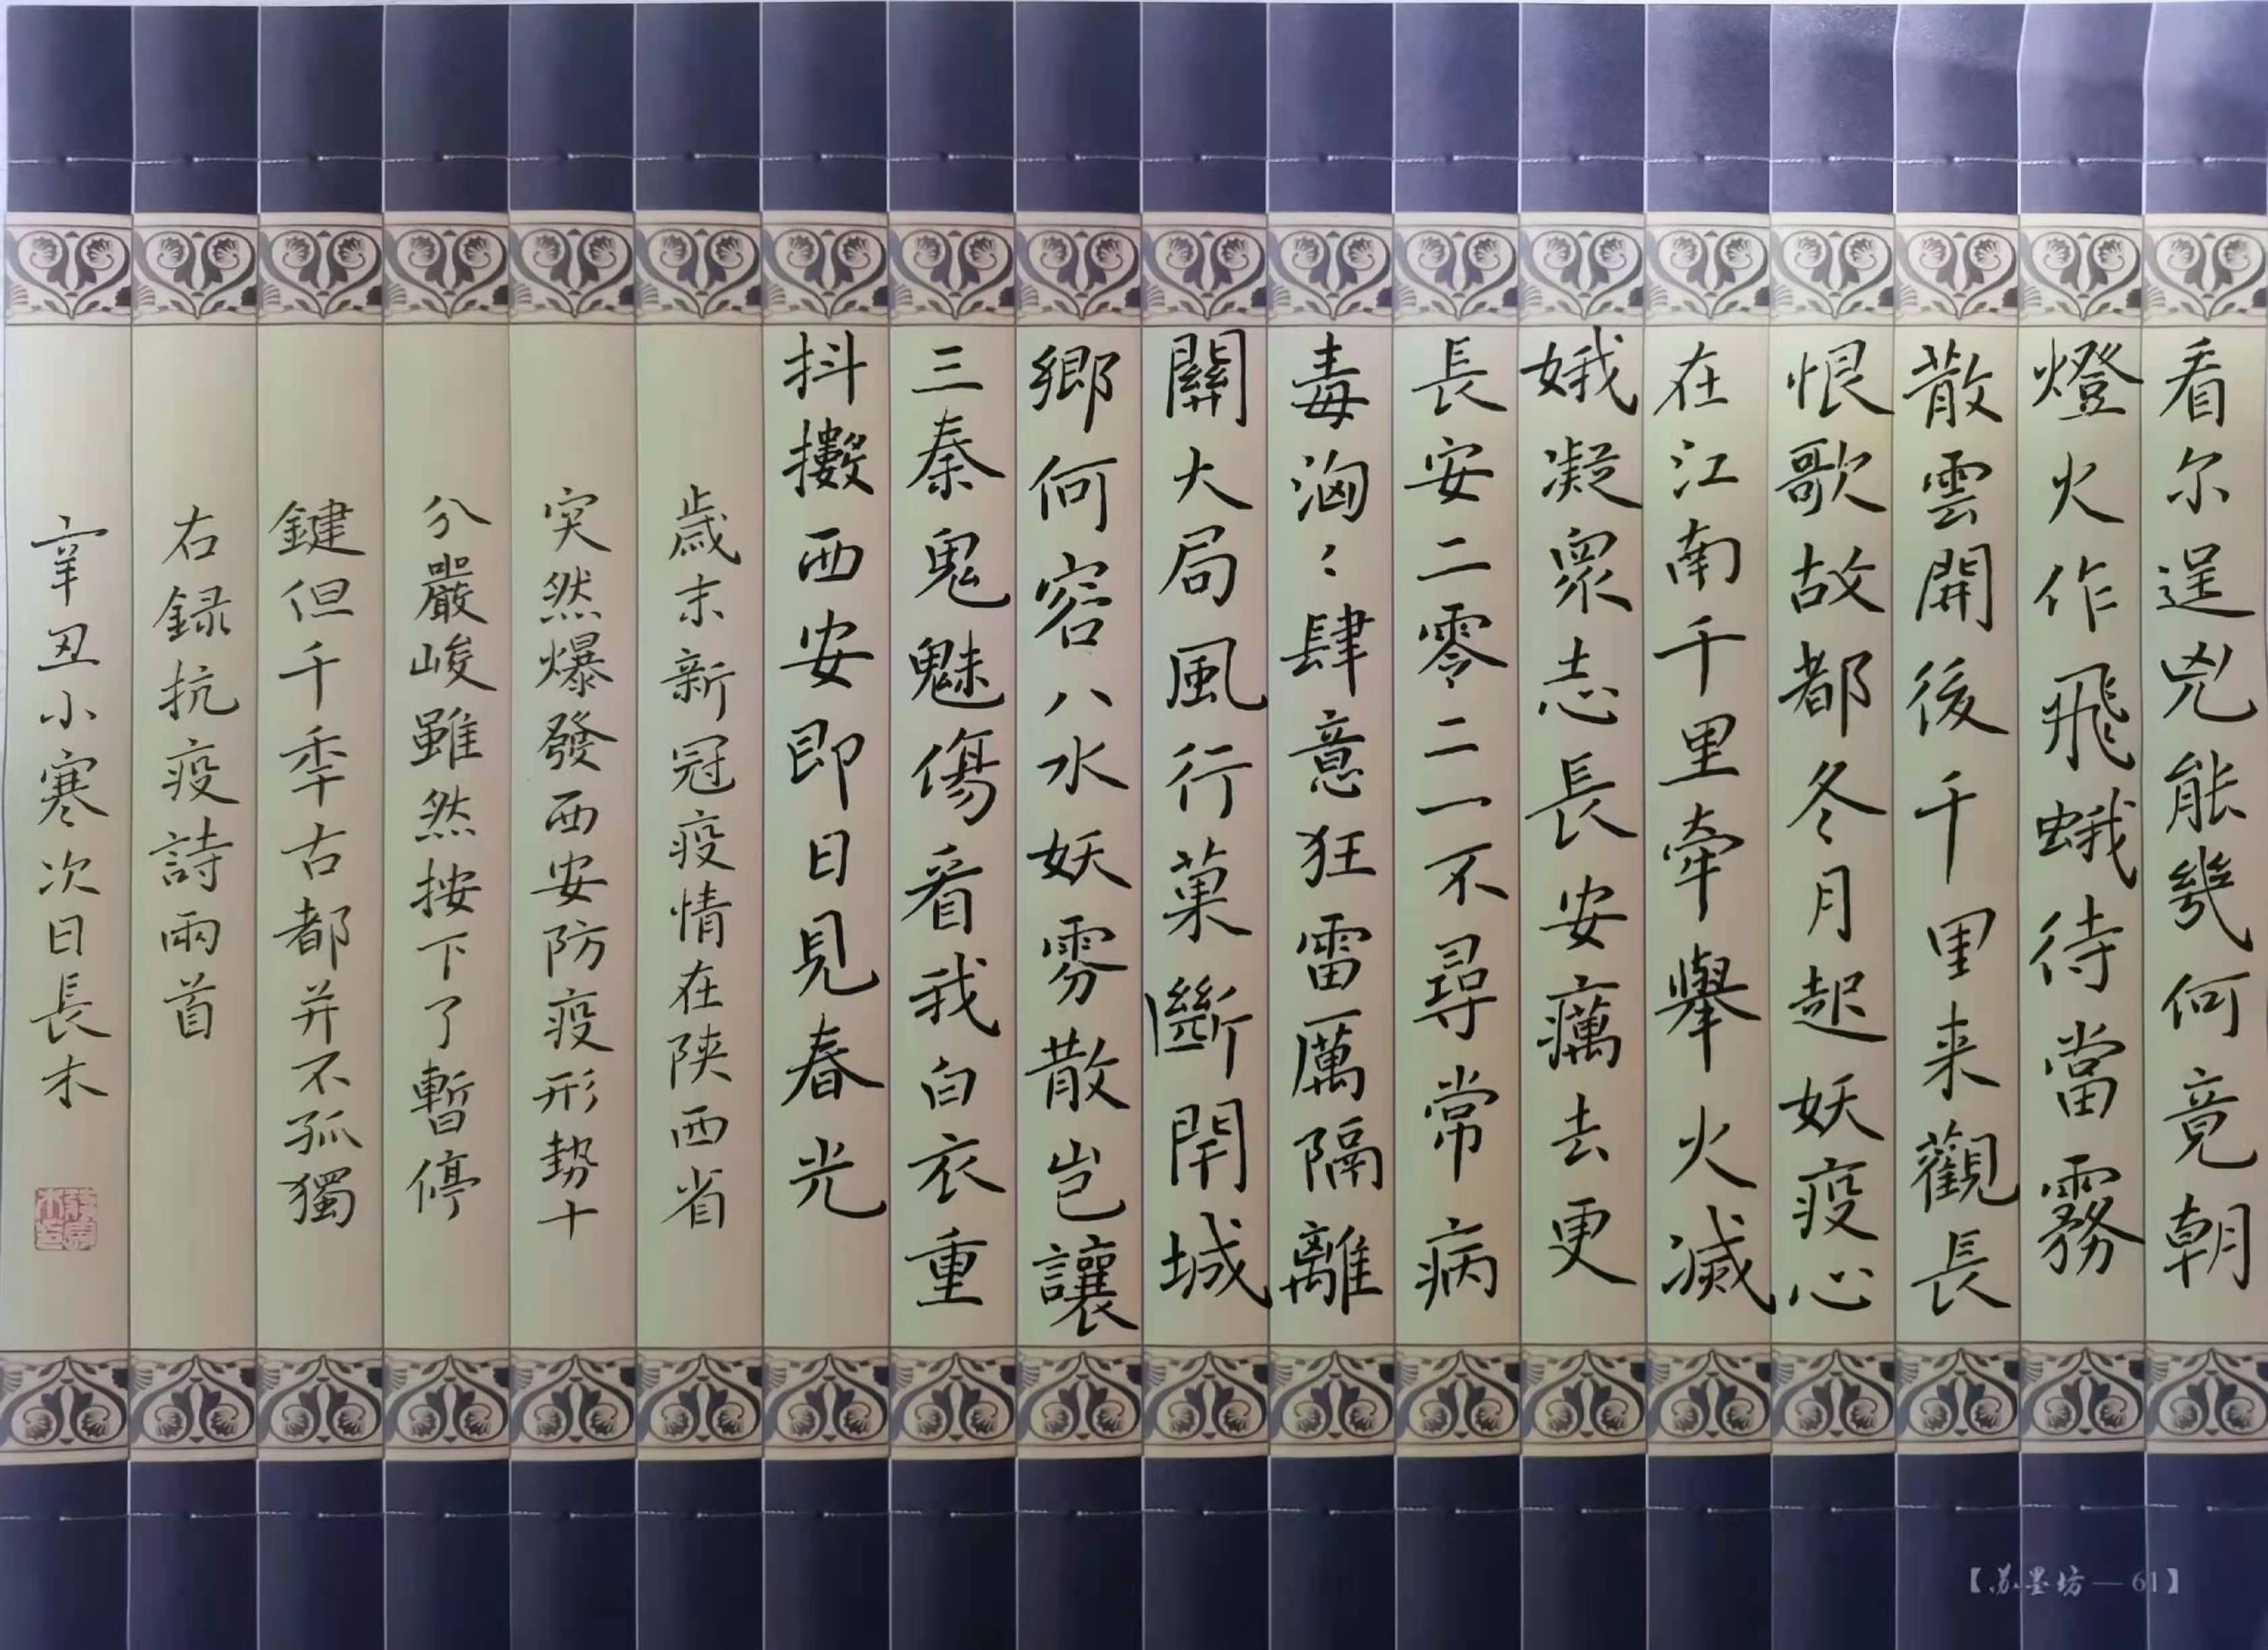 看尔逞兇能幾何竟朝
燈火作飛蛾待當霧
散雲開後千里来觀長
恨歌故都冬月起妖疫心
在江南千里牽舉火滅
娥凝眾志長安癘去更
長安二零二一不尋常病
毒洶〻肆意狂雷厲隔離
關大局風行菓斷閈城
鄉何容八水妖雰散岂讓
三秦鬼魅傷看我白衣重
抖擻西安即日見春光
歲末新冠疫情在陝西省
突然爆發西安防疫形勢十
分嚴峻雖然按下了暫停
鍵但千秊古都并不孤獨
右録抗疫詩兩首
辛丑小寒次日長木
【苏墨坊—61】